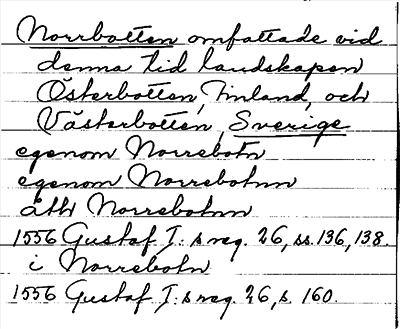 Norrbotten omfattade vid
denna tid landskapen
Österbotten, Finland, och
Västerbotten, Sverige
egenom Norrebotn
egenom Norrebotnn
åth Norrebotnn
1556 Gustaf I: s reg. 26, ss. 136, 138.
i Norrebotn
1556 Gustaf I: s reg. 26, s. 160.